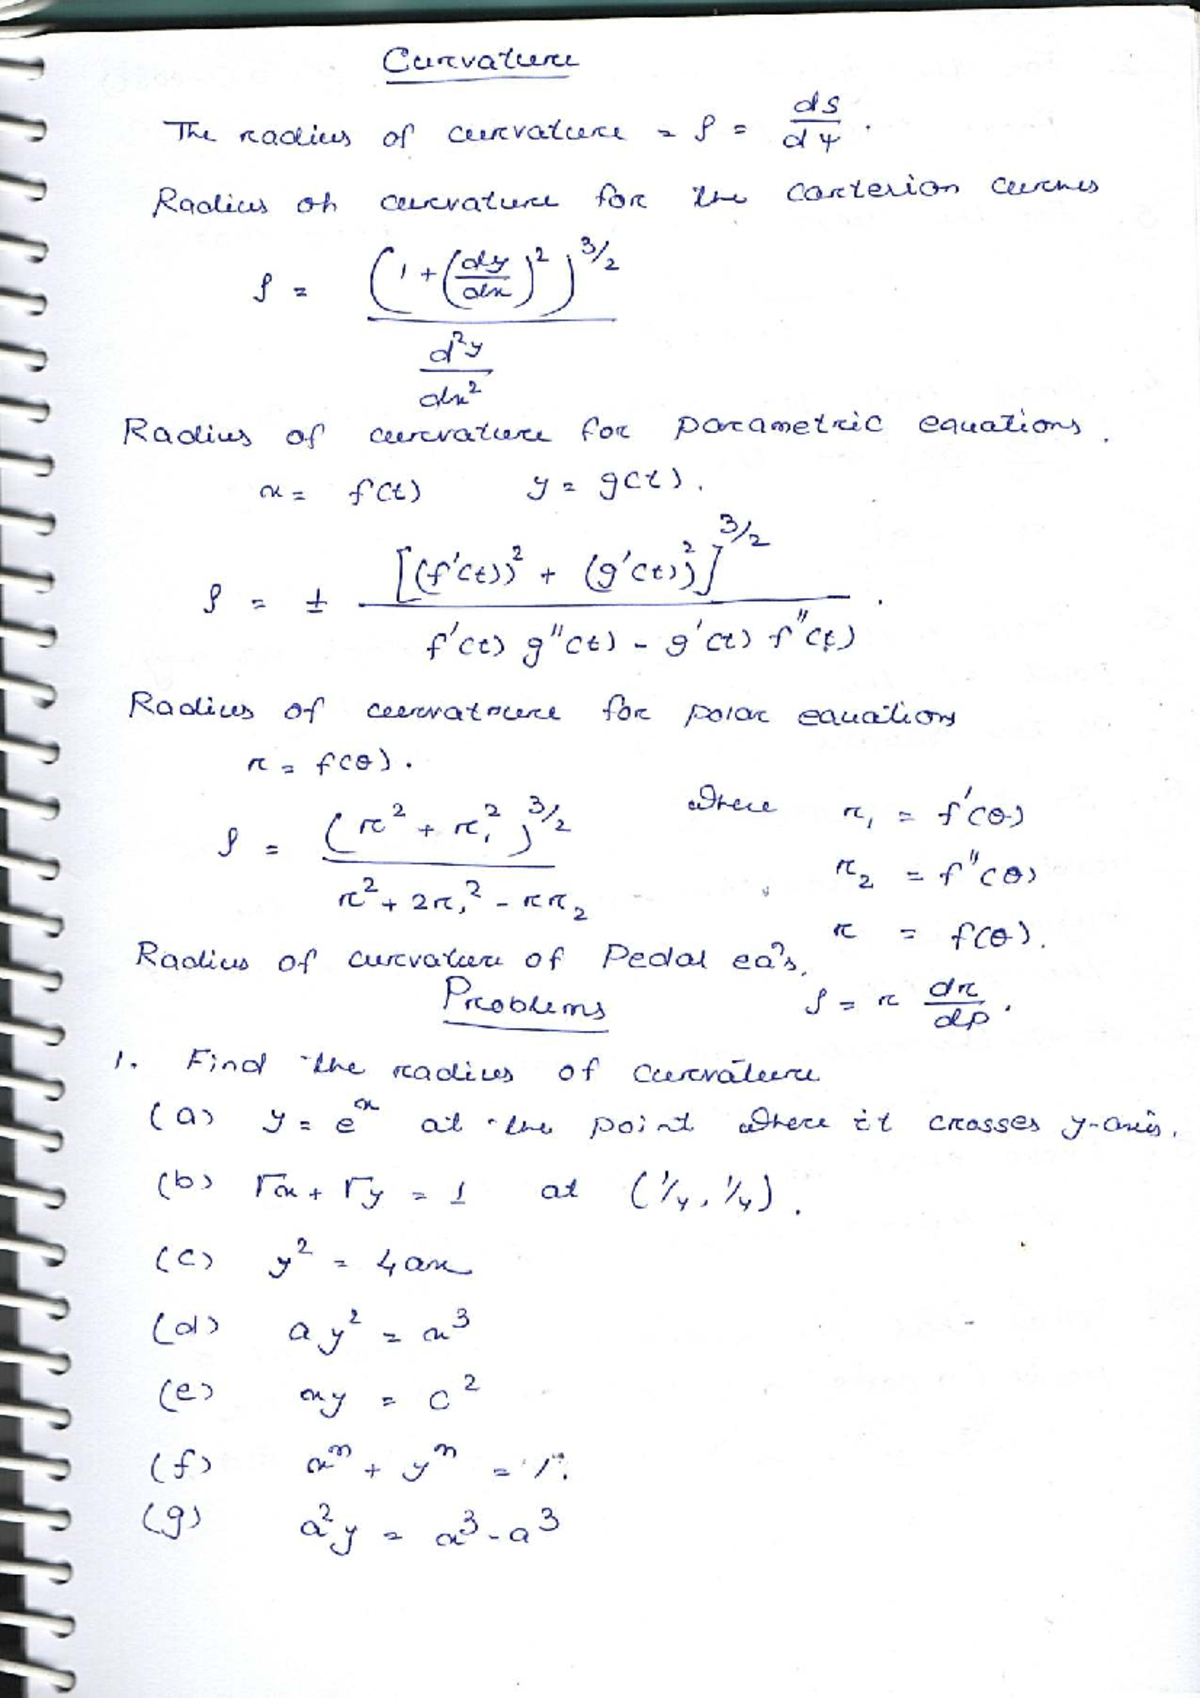 Curvature
The radius of curvature = ρ = ds/dψ.
Radius of curvature for the carterion curves
ρ = (1 + (dy/dx)²)^3/2 / d²y/dx²
Radius of curvature for parametric equations.
x = f(t)   y = g(t).
ρ = ± [(f'(t))² + (g'(t))²]^3/2 / f'(t) g''(t) - g'(t) f''(t).
Radius of curvature for polar equations
r = f(θ).
ρ = (r² + r₁²)^3/2 / r² + 2r₁² - rr₂   where r₁ = f'(θ)
r₂ = f''(θ)
r = f(θ).
Radius of curvature of Pedal eqⁿs.
ρ = r dr/dp.
Problems
1. Find the radius of curvature
(a) y = e^x at the point where it crosses y-axis.
(b) √x + √y = 1 at (1/4, 1/4).
(c) y² = 4ax
(d) ay² = x³
(e) xy = c²
(f) xⁿ + yⁿ = 1.
(g) a²y = x³ - a³